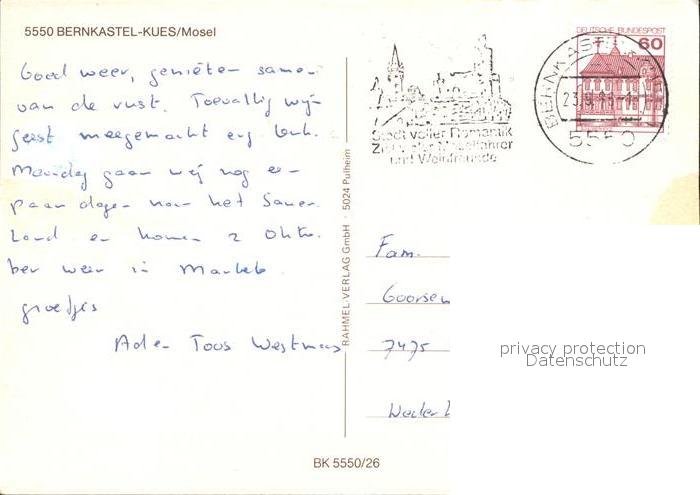 5550 BERNKASTEL-KUES/Mosel
Goed weer, genieten samen
van de rust. Toevallig wijn
feest meegemacht erg leuk.
Maandag gaan wij nog een
paar dagen naar het Sauer
Land en komen 2 Okto
ber weer in Markelo
groetjes
Ad en Toos Westmaas
RAHMEL-VERLAG GmbH · 5024 Pulheim
Stadt voller Romantik
Ziel aller Moselfahrer
und Weinfreunde
BERNKASTEL
5550
DEUTSCHE BUNDESPOST
60
Fam.
Goorsen
7475
Nederl
privacy protection
Datenschutz
BK 5550/26